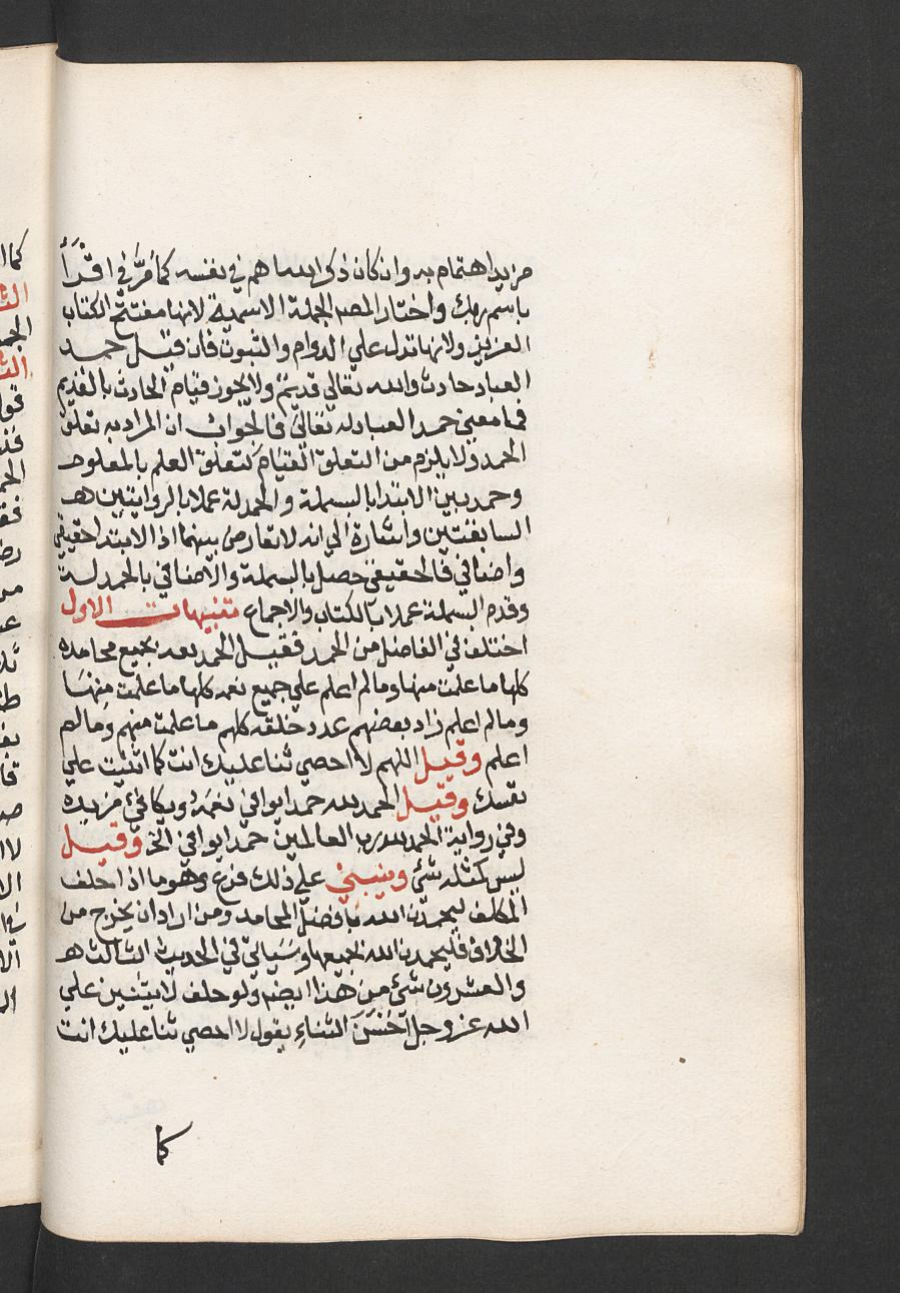 مزيد اهتمام به وان كان ذكر الله اهم في نفسه كما مرَّ في اقْرَأْ
باسم ربك واختار المصـ الجملة الاسمية لانها مفتتح الكتاب
العزيز ولانها تدل علي الدوام والثبوت فان قيل حمد
العباد حادث والله تعالي قديم ولا يجوز قيام الحادث بالقديم
فما معني حمد العباد له تعالي فالجواب ان المراد به تعلق
الحمد ولا يلزم من التعلق القيام كتعلق العلم بالمعلوم
وجمع بين الابتدا بالبسملة والحمدلة عملا بالروايتين
السابقتين واشارة الي انه لا تعارض بينهما اذ الابتدا حقيقي
واضافي فالحقيقي حصل بالبسملة والاضافي بالحمدلة
وقدم البسملة عملا بالكتاب والاجماع تنبيهات الاول
اختلف في الفاضل من الحمد فقيل الحمد لله بجميع محامده
كلها ما علمت منها وما لم اعلم علي جميع نعمه كلها ما علمت منها
وما لم اعلم زاد بعضهم عدد خلقه كلهم ما علمت منهم وما لم
اعلم وقيل اللهم لا احصي ثنا عليك انت كما اثنيت علي
نفسك وقيل الحمد لله حمدا يوافي نعمه ويكافئ مزيده
وفي رواية الحمد لله رب العالمين حمدا يوافي الخ وقيل
ليس كمثله شئ وينبني علي ذلك فرع وهو ما اذا حلف
المكلف ليحمدن الله بافضل المحامد ومن اراد ان يخرج من
الخلاف فليحمدن الله بجميعها وسياتي في الحديث الثالث
والعشرون شئ من هذا ايضا ولو حلف لايثنين علي
الله عز وجل احسن الثناء يقول لا احصي ثنا عليك انت
كما